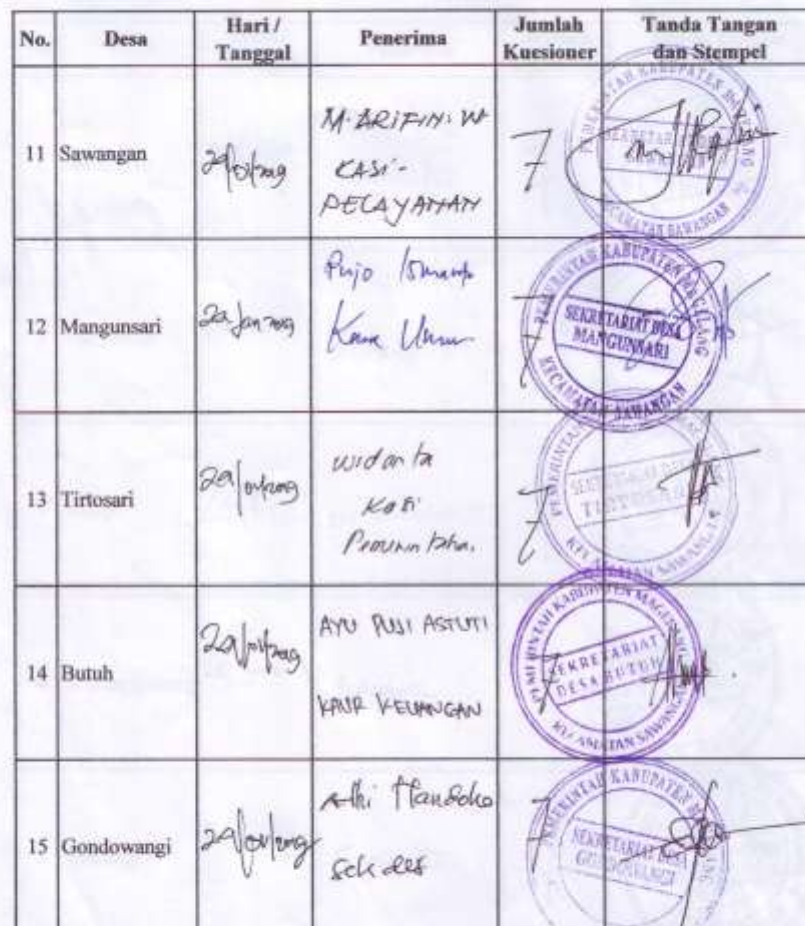 No. Desa Hari / Tanggal Penerima Jumlah Kuesioner Tanda Tangan dan Stempel
11 Sawangan M. ARIFIN. W 7
KASI - PELAYANAN
PEMERINTAH KABUPATEN
SEKRETARIAT
KECAMATAN SAWANGAN
12 Mangunsari 29 Jan 2019 Pujo 7
Kaur Umum
PEMERINTAH KABUPATEN MAGELANG
SEKRETARIAT DESA
MANGUNSARI
KECAMATAN SAWANGAN
13 Tirtosari 29/01/2019 Widarta 7
Kasi
SEKRETARIAT DESA
TIRTOSARI
14 Butuh 29/01/2019 AYU PUJI ASTUTI 7
KAUR KEUANGAN
PEMERINTAH KABUPATEN MAGELANG
SEKRETARIAT
DESA BUTUH
KECAMATAN SAWANGAN
15 Gondowangi 29/01/2019 Adhi Handoko 7
Sekdes
PEMERINTAH KABUPATEN
SEKRETARIAT DESA
GONDOWANGI